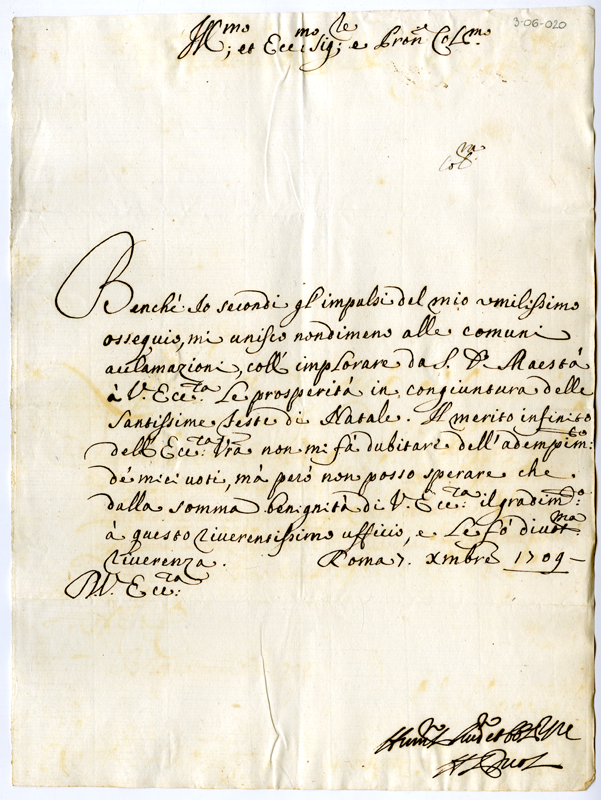 3-06-020
Ill.mo et Ecc.mo Sig.re e Pron.e Col.mo
Benché Io secondi gl'impulsi del mio umilissimo
ossequio, mi unisco nondimeno alle comuni
acclamazioni, coll'implorare da S. D. Maestà
à V. Ecc.za Le prosperità in congiuntura delle
Santissime feste di Natale. Il merito infinito
dell'Ecc.za Vra non mi fà dubitare dell'adempim.to
dé miei voti, mà però non posso sperare che
dalla somma benignità di V. Ecc.za il gradim.to
à questo riverentissimo ufficio, e Le fò divot.ma
riverenza. Roma 7. xmbre 1709
V. Ecc.za